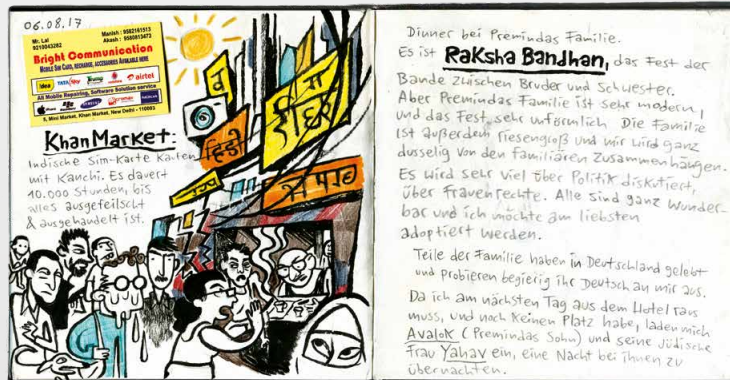 06.08.17
Mr. Lal
9210043282
Manish : 9582161513
Akash : 9580813473
Bright Communication
MOBILE SIM CARD, RECHARGE, ACCESSORIES AVAILABLE HERE
idea
TATA
airtel
All Mobile Repairing, Software Solution service
BlackBerry
SAMSUNG
NOKIA
9, Mini Market, Khan Market, New Delhi - 110003
Khan Market:
Indische Sim-Karte Kaufen
mit Kanchi. Es dauert
10.000 Stunden, bis
alles ausgefeilscht
& ausgehandelt ist.
व
हिंडी
Dinner bei Premindas Familie.
Es ist Raksha Bandhan, das Fest der
Bande zwischen Bruder und Schwester.
Aber Premindas Familie ist sehr modern,
und das Fest sehr unförmlich. Die Familie
ist außerdem riesengroß und mir wird ganz
dusselig von den familiären Zusammenhängen.
Es wird sehr viel über Politik diskutiert,
über Frauenrechte. Alle sind ganz wunder-
bar und ich möchte am liebsten
adoptiert werden.
Teile der Familie haben in Deutschland gelebt
und probieren begierig ihr Deutsch an mir aus.
Da ich am nächsten Tag aus dem Hotel raus
muss, und noch keinen Platz habe, laden mich
Avalok (Premindas Sohn) und seine jüdische
Frau Yahav ein, eine Nacht bei ihnen zu
übernachten.